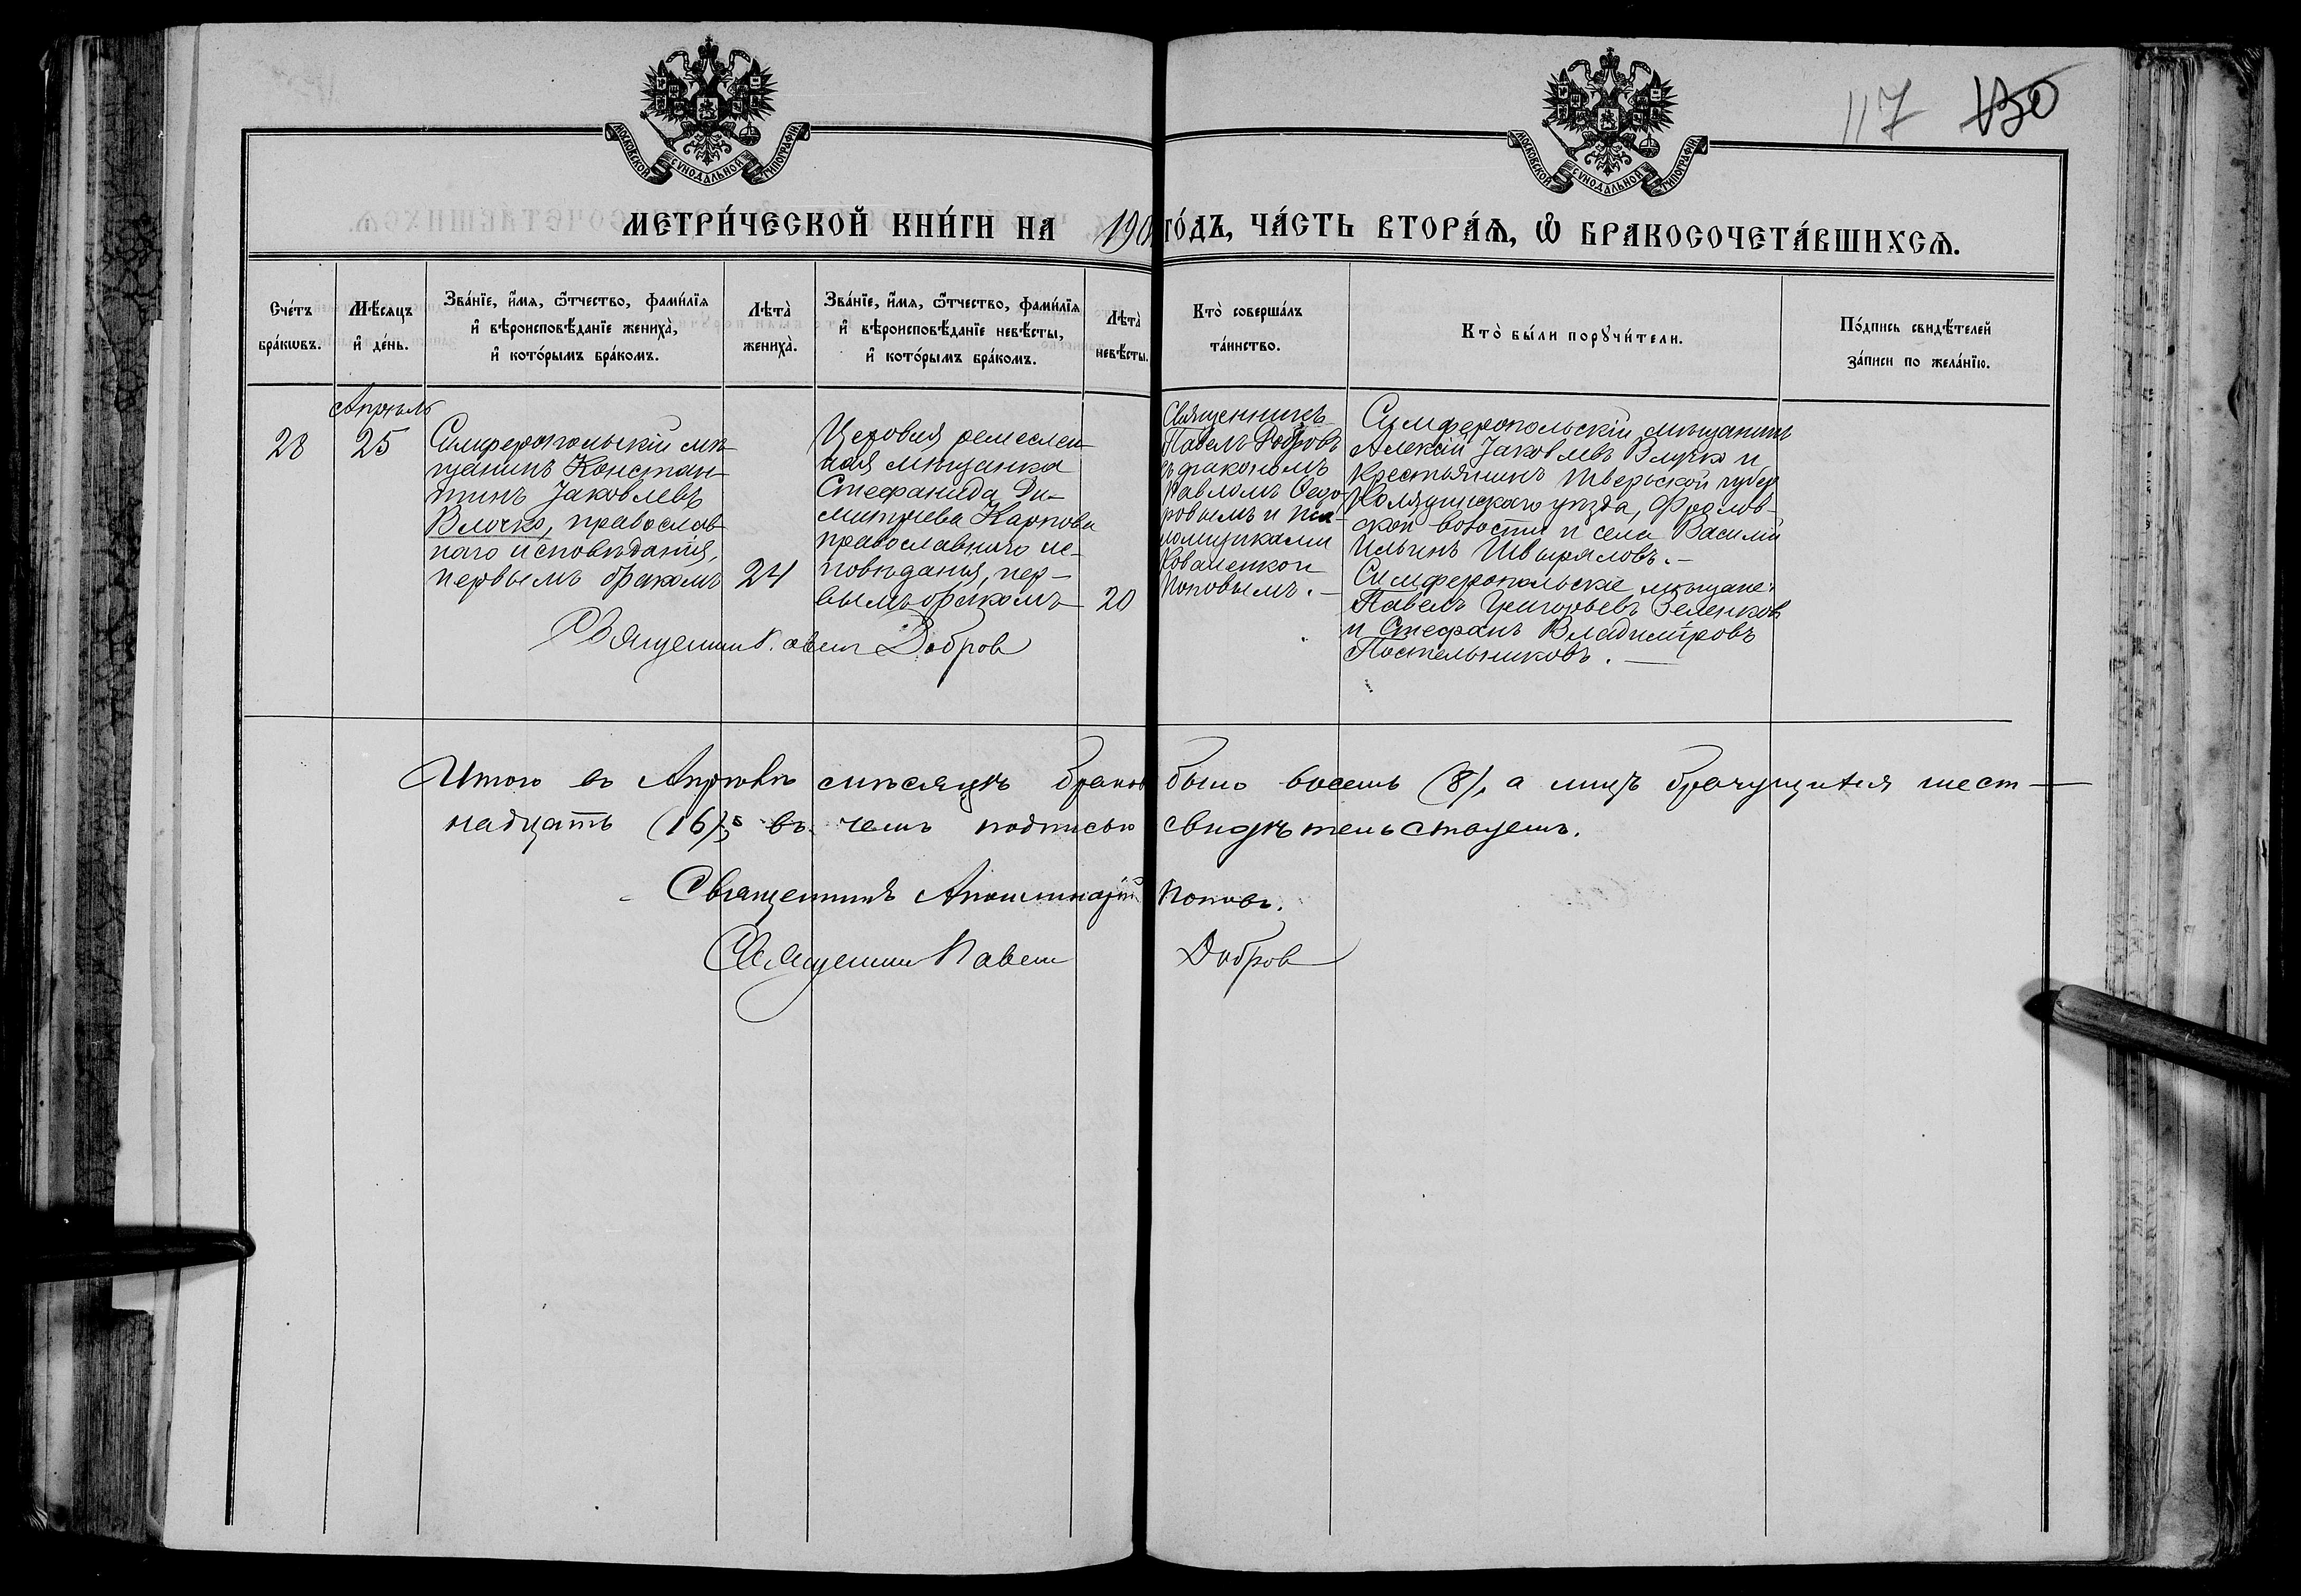 117 130
МОСКОВСКОЙ СѴНОДАЛЬНОЙ ТИПОГРАФІИ
МОСКОВСКОЙ СѴНОДАЛЬНОЙ ТИПОГРАФІИ
МЕТРИ́ЧЕСКОЙ КНИ́ГИ НА 190
ГО́ДЪ, ЧА́СТЬ ВТОРА́Ѧ, Ѡ҆ БРАКОСОЧЕТА́ВШИХСѦ.
Сче́тъ
бра́кѡвъ.
Мѣ́сяцъ
и҆ де́нь.
Зва́нїе, и҆́мя, ѻ҆́тчество, фами́лїя
и҆ вѣроисповѣ́данїе жениха̀,
и҆ кото́рымъ бра́комъ.
Лѣта̀
жениха̀.
Зва́нїе, и҆́мя, ѻ҆́тчество, фами́лїя
и҆ вѣроисповѣ́данїе невѣ́сты,
и҆ кото́рымъ бра́комъ.
Лѣта̀
невѣ́сты.
Кто̀ соверша́лъ
та́инство.
Кто̀ бы́ли порꙋчи́тели.
По́дпись свидѣ́телей
за́писи по жела́нїю.
28
Апрѣль
25
Симферопольскій мѣ-
щанинъ Констан-
тинъ Яковлевъ
Влучко, православ-
наго исповѣданія,
первымъ бракомъ
24
Цеховая ремеслен-
ная мѣщанка
Стефанида Ди-
митріева Карпова
православнаго ис-
повѣданія, пер-
вымъ бракомъ
20
Священникъ Павелъ Добров
Священникъ
Павелъ Добровъ
съ діакономъ
Павломъ Ѳедо-
ровымъ и пса-
ломщиками
Коваленкои
Поповымъ.-
Симферопольскій мѣщанинъ
Алексій Яковлевъ Влучко и
Крестьянинъ Тверьской губер.
Колязинскаго уѣзда, Фролов-
ской волости и села Василій
Ильинъ Швыряловъ.-
Симферопольскіе мѣщане:
Павелъ Григорьевъ Зеленковъ
и Стефанъ Владиміровъ
Постельниковъ.-
Итого въ Апрѣлѣ мѣсяцѣ браковъ было восемь (8), а лицъ брачущихся шест-
надцать (16), въ чемъ подписью свидѣтельствуемъ.
Священникъ Аполлинарій Поповъ.
Священник Павелъ Добров